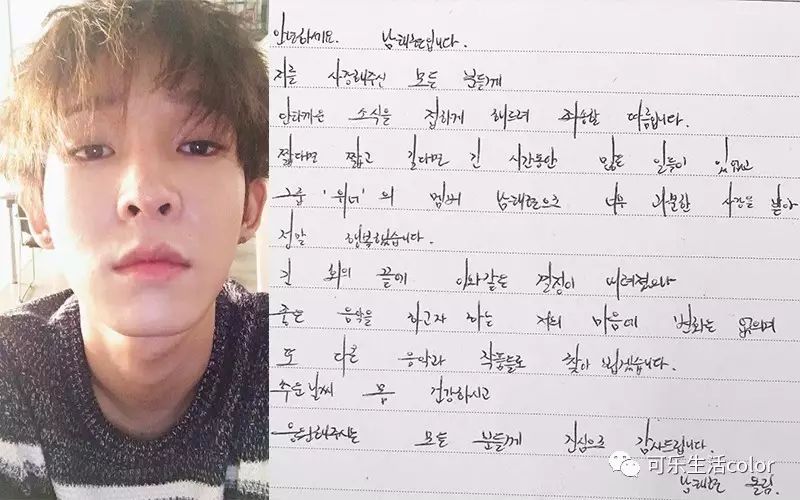 안녕하세요. 남태현입니다.
저를 사랑해주신 모든 분들께
안타까운 소식을 접하게 해드려 죄송할 따름입니다.
짧다면 짧고 길다면 긴 시간동안 많은 일들이 있었고
그룹 '위너'의 멤버 남태현으로 너무 과분한 사랑을 받아
정말 행복했습니다.
긴 회의 끝에 이와같은 결정이 내려졌으나
좋은 음악을 하고자 하는 저의 마음에 변화는 없으며
또 다른 음악과 작품들로 찾아 뵙겠습니다.
추운날씨 몸 건강하시고
응원해주시는 모든 분들께 진심으로 감사드립니다.
남태현 올림.
可乐生活color